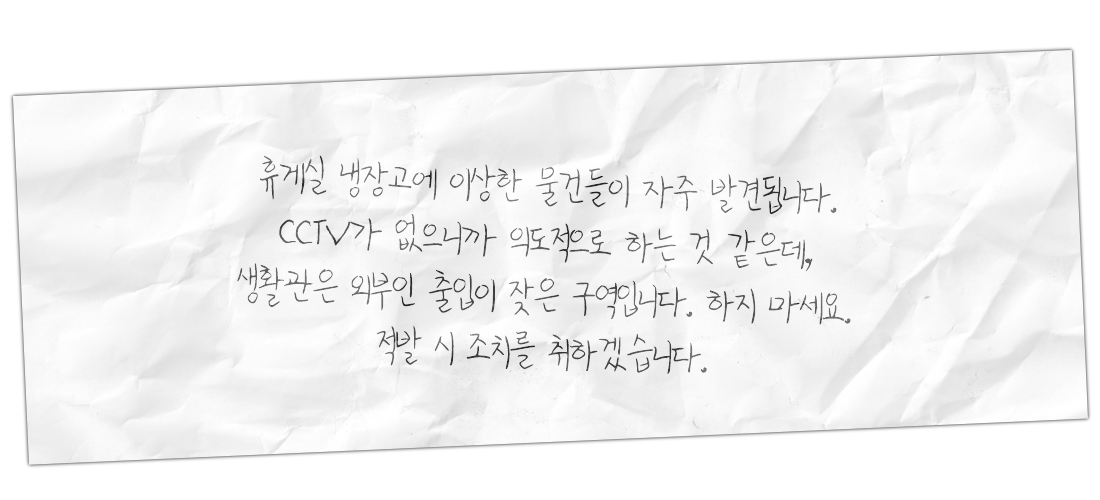 휴게실 냉장고에 이상한 물건들이 자주 발견됩니다.
CCTV가 없으니까 의도적으로 하는 것 같은데,
생활관은 외부인 출입이 잦은 구역입니다. 하지 마세요.
적발 시 조치를 취하겠습니다.